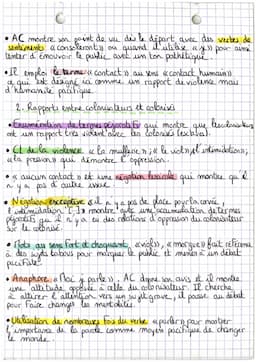 • AC montre son point de vu dès le départ avec des verbes de
sentiments « consolèrent » ou quand il utilise « y » pour ainsi
tenter d'émouvoir le public avec un ton pathétique.
• Il emploi le terme « contact » au sens « contact humain »
ce qui est désigné ici comme un rapport de violence mais
d'humanité pacifique.
2. Rapports entre colonisateurs et colonisés
• Enumération de termes péjoratifs qui montre que
est un rapport très violent avec les colonisés
• Cf de la violence « la muflerie », « le viol », « l'intimidation »,
« la pression » qui démontre l'oppression.
• « aucun contact » est une négation lexicale qui montre qu'il
n'y a pas d'autre issue.
• Négation exceptive « il n'y a de place que pour la corvée,
l'intimidation [...] » montre qu'une accumulation de termes
péjoratifs que il n'y a des relations d'oppression du colonisateur
sur le colonisé.
• Mots au sens fort et choquant, « viols », « morgue » fait référence
à des sujets tabous pour marquer le public et menés à un débat
pacifiste.
• Anaphore « Moi je parle » AC donne son avis et il montre
une attitude opposée à celle du colonisateur. Il cherche
à attirer l'attention vers un sujet grave, il passe au débat
pour faire changer les mentalités.
• Utilisation de nombreuses fois du verbe « parler » pour montrer
l'importance de la parole comme moyen pacifique de changer
le monde.